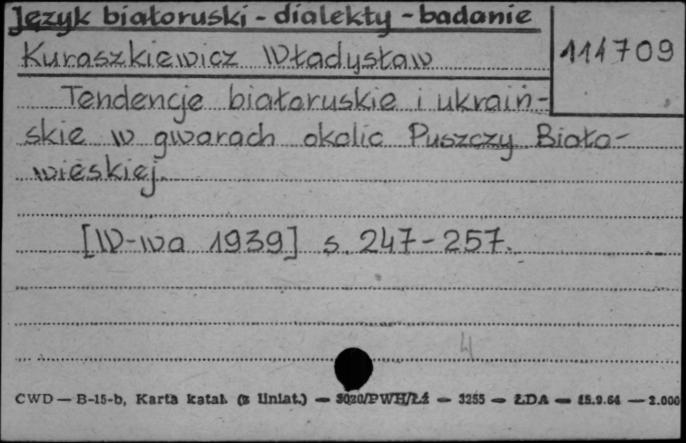 Język białoruski - dialekty - badanie
Kuraszkiewicz Władysław
114709
Tendencje białoruskie i ukraiń-
skie w gwarach okolic Puszczy Biało-
wieskiej.
[W-wa 1939] s. 247-257.
4
CWD — B-15-b, Karta katal. (z liniat.) — 3020/PWH/Łź — 3255 — ŁDA — 15.9.64 — 2.000